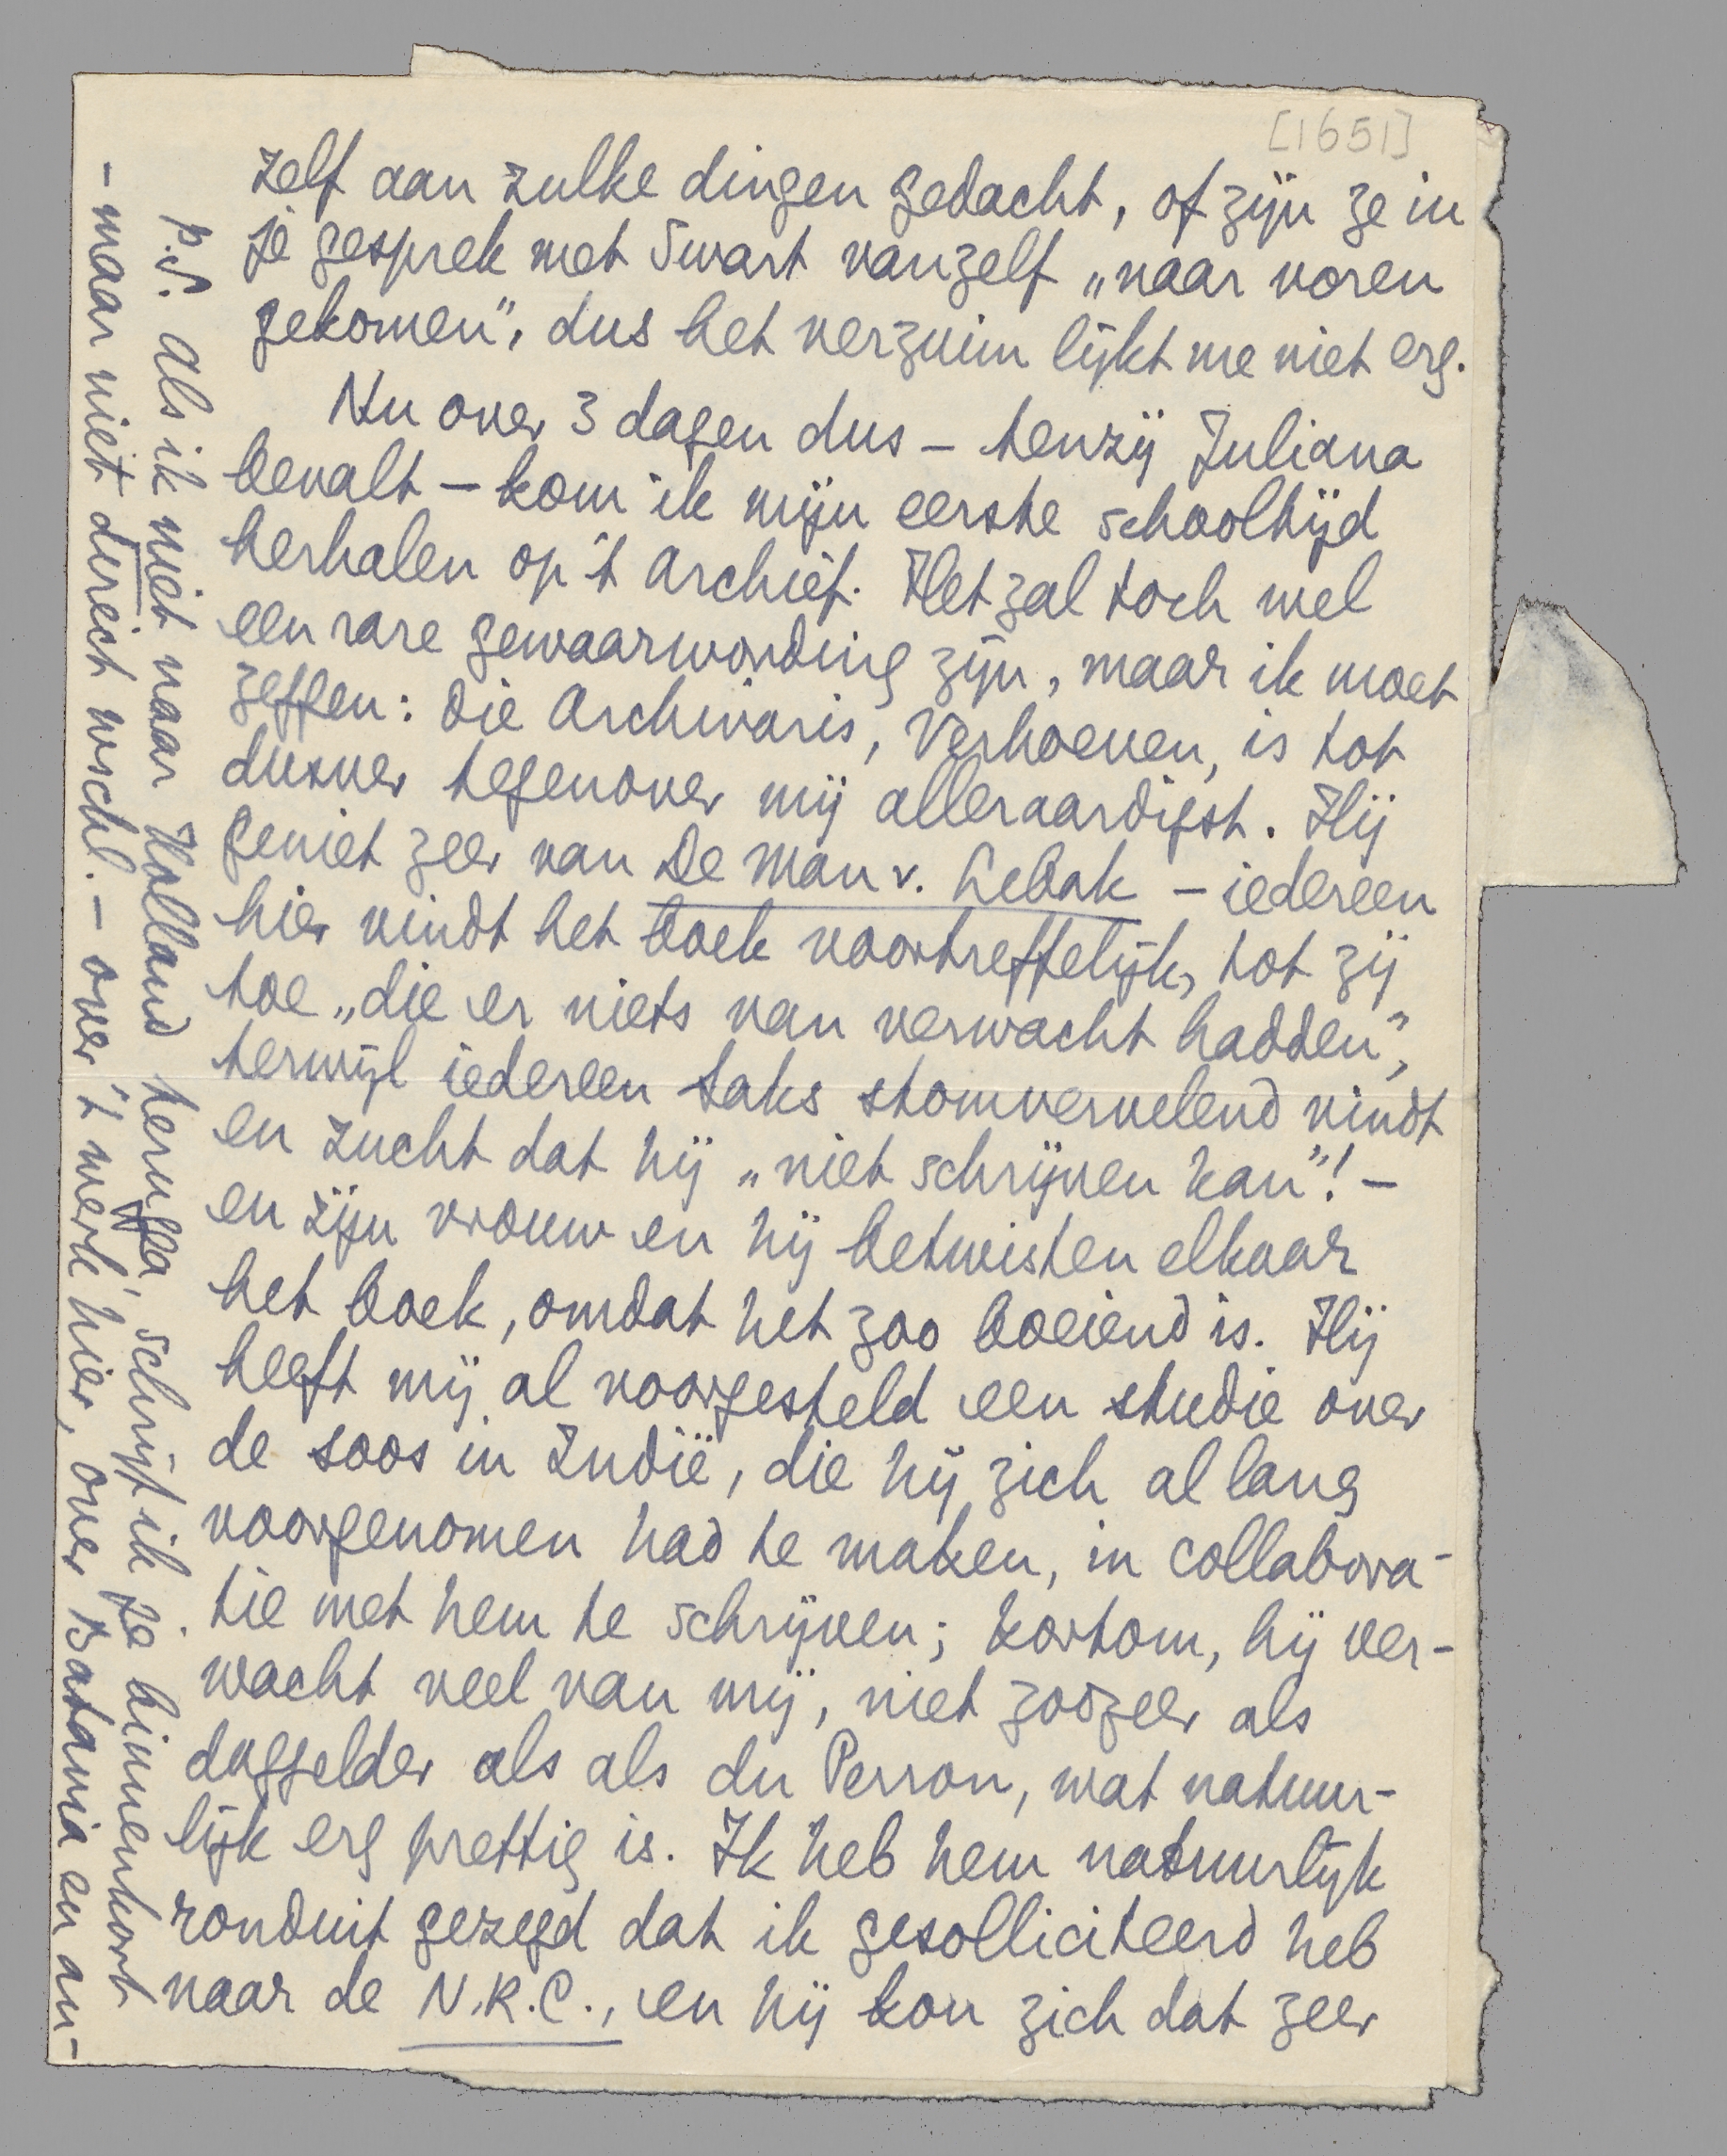 [1651]
zelf aan zulke dingen gedacht, of zijn ze in
je gesprek met Swart vanzelf „naar voren
gekomen”, dus het verzuim lijkt me niet erg.
Nu over 3 dagen dus – tenzij Juliana
bevalt – kom ik mijn eerste schooltijd
herhalen op 't Archief. Het zal toch wel
een rare gewaarwording zijn, maar ik moet
zeggen: die Archivaris, Verhoeven, is tot
dusver tegenover mij alleraardigst. Hij
geniet zeer van De Man v. Lebak – iedereen
hier vindt het boek voortreffelijk, tot zij
toe „die er niets van verwacht hadden”,
terwijl iedereen Saks stomvervelend vindt
en zucht dat hij „niet schrijven kan”! –
en zijn vrouw en hij betwisten elkaar
het boek, omdat het zoo boeiend is. Hij
heeft mij al voorgesteld een studie over
de soos in Indië, die hij zich al lang
voorgenomen had te maken, in collabora-
tie met hem te schrijven; kortom, hij ver-
wacht veel van mij, niet zoozeer als
daggelder als als du Perron, wat natuur-
lijk erg prettig is. Ik heb hem natuurlijk
ronduit gezegd dat ik gesolliciteerd heb
naar de N.R.C., en hij kon zich dat zeer
P.S. Als ik niet naar Holland terugga, schrijf ik je binnenkort
– maar niet direct wschl. – over 't werk hier, over Batavia en an-